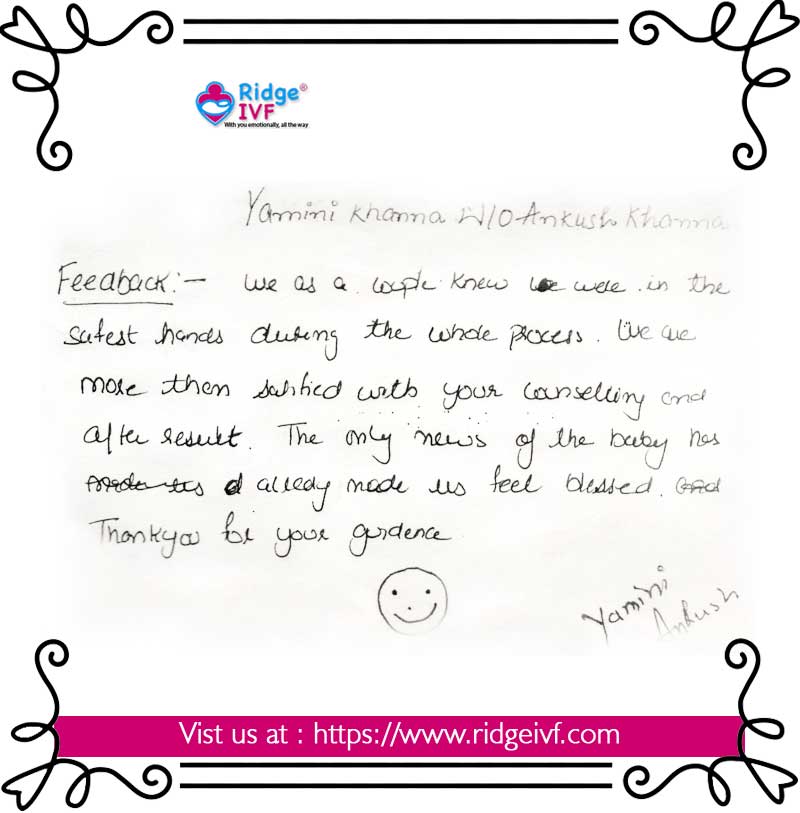 Ridge®
IVF
With you emotionally, all the way
Yamini Khanna W/O Ankush Khanna
Feedback:- We as a couple knew we were in the
safest hands during the whole process. We are
more then satisfied with your counselling and
after result. The only news of the baby has
made us already made us feel blessed. and
Thankyou for your guidence
Yamini
Ankush
Vist us at : https://www.ridgeivf.com